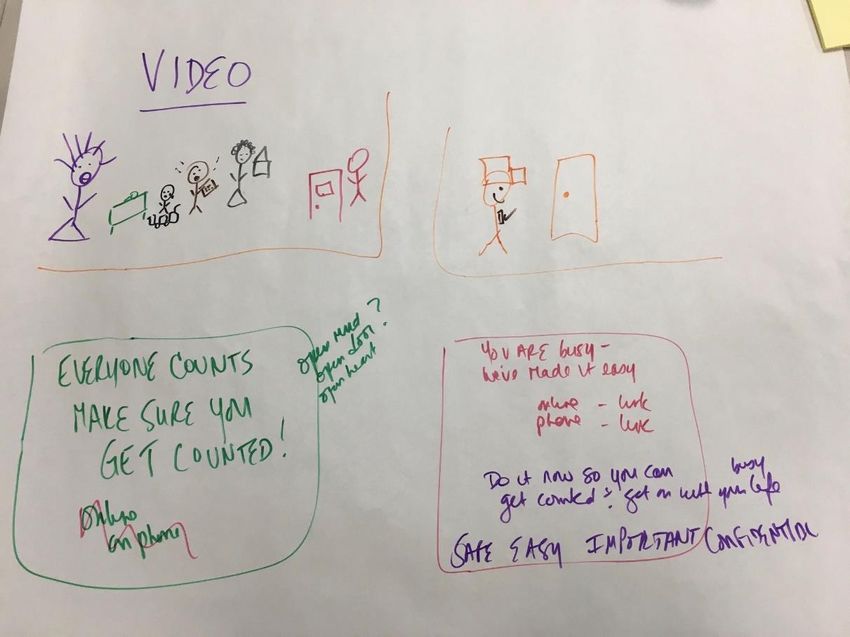 VIDEO
EVERYONE COUNTS
MAKE SURE YOU
GET COUNTED!
online
on phone
open mind?
open door
open heart
YOU ARE busy -
We've Made it easy
online - link
phone - link
Do it now so you can
get counted & get on with your busy life
SAFE EASY IMPORTANT CONFIDENTIAL